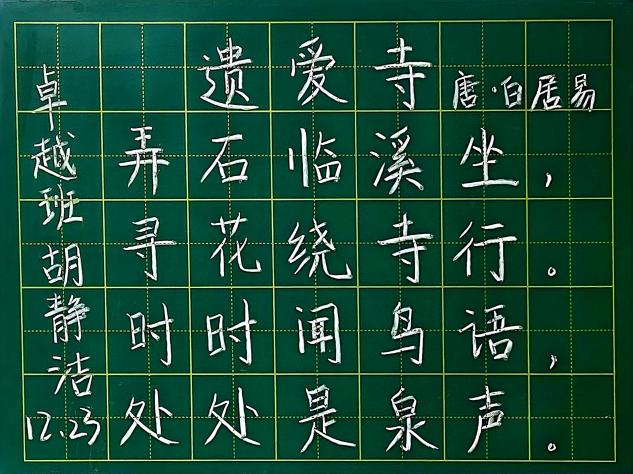 遗爱寺 唐·白居易
弄石临溪坐，
寻花绕寺行。
时时闻鸟语，
处处是泉声。
卓越班胡静洁
12.23